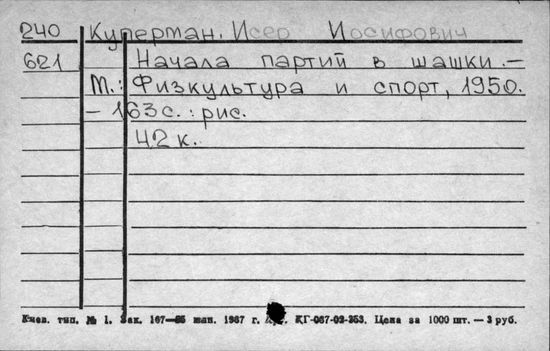 240 Куперман, Исер Иосифович
621 Начала партий в шашки.—
М.: Физкультура и спорт, 1950.
– 163 с.: рис.
42 к.
Киев. тип. № 1. Зак. 167—85 млн. 1987 г. КГ-067-02-253. Цена за 1000 шт. — 3 руб.